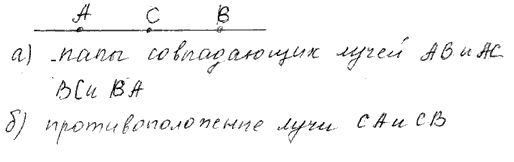 A C B
а) папы совпадающих лучей AB и AC
BC и BA
б) противоположение лучи CA и CB